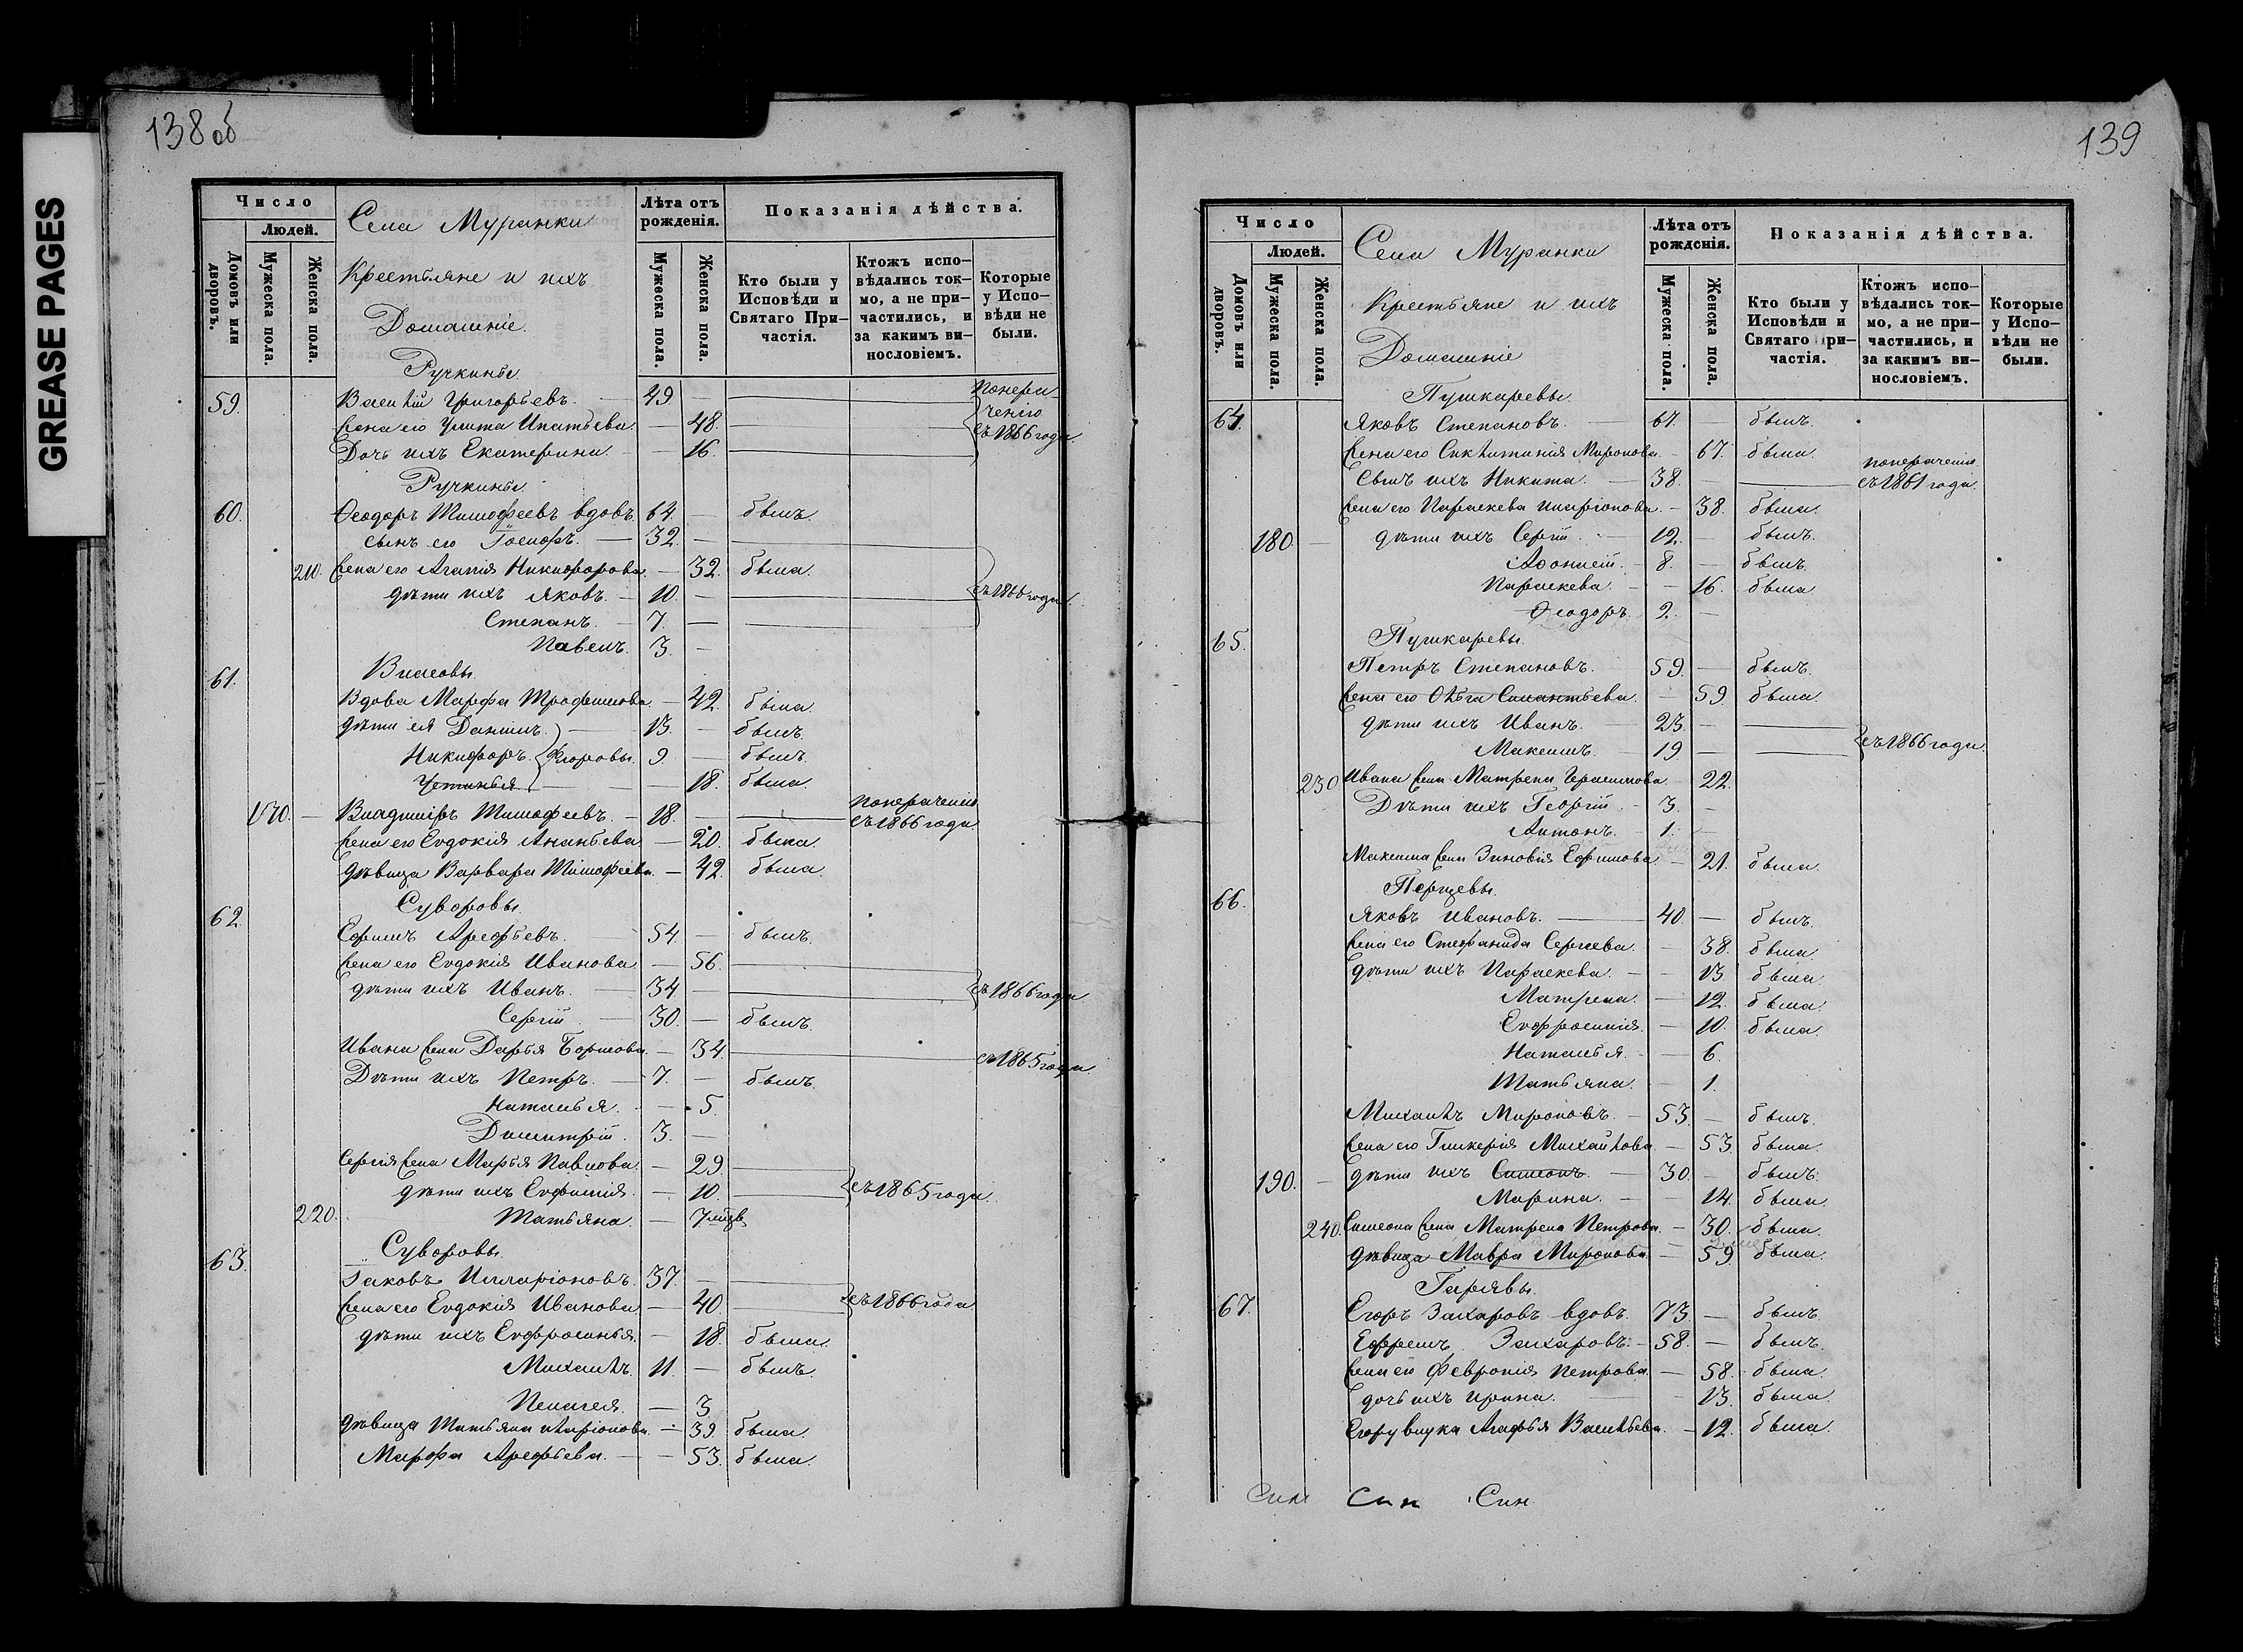 GREASE PAGES
138об
Число
Людей.
Домовъ или дворовъ.
Мужеска пола.
Женска пола.
Села Муранки
Крестьяне и ихъ
Домашніе.
Лѣта отъ рожденія.
Мужеска пола.
Женска пола.
Показанія дѣйства.
Кто были у Исповѣди и Святаго Причастія.
Ктожъ исповѣдались токмо, а не причастились, и за какимъ винословіемъ.
Которые у Исповѣди не были.
Ручкины
59. Василій Григорьевъ. 49. —
Жена его Улита Ипатьева. — 48. съ 1866 года
Дочь ихъ Екатерина. — 16.
Ручкины.
60. Ѳеодоръ Тимофеевъ вдовъ. 64. — былъ.
сынъ его Іосифъ. — 32. —
210. Жена его Агапія Никифорова. — 32. была.
дѣти ихъ Яковъ. — 10. — съ 1866 года.
Степанъ. — 7. —
Павелъ. 3. —
61. Власовы.
Вдова Марфа Трофимова. — 42. была
дѣти ея Даніилъ. — 13. — былъ.
Никифоръ. Флоровы. 9. — былъ.
Устинья — 18. была.
170. — Владиміръ Тимофеевъ. — 18. — съ 1866 года.
Жена его Евдокія Ананьева. — 20. была.
дѣвица Варвара Тимофеева. — 42. была.
Суворовы.
62. Ефимъ Арефьевъ. 54. — былъ.
Жена его Евдокія Иванова. — 56.
дѣти ихъ Иванъ. — 34. — съ 1866 года
Сергій. — 30. — былъ.
Ивана жена Дарья Борисова. — 34. съ 1865 года.
Дѣти ихъ Петръ. — 7. — былъ.
Наталья. — 5.
Димитрій. 3. —
Сергія жена Марья Павлова. — 29.
дѣти ихъ Евфимія. — 10. съ 1865 года.
220. Татьяна. — 7 мѣс.
Суворовы.
63. Іаковъ Илларіоновъ. 37. —
Жена его Евдокія Иванова — 40. съ 1866 года
дѣти ихъ Евфросинья. — 18. была.
Михаилъ. 11. — былъ.
Пелагея. — 3.
дѣвица Татьяна Иларіонова. — 39. была.
Марфа Арефьева. — 53. была.
139
Число
Людей.
Домовъ или дворовъ.
Мужеска пола.
Женска пола.
Села Муранки
Крестьяне и ихъ
Домашніе
Лѣта отъ рожденія.
Мужеска пола.
Женска пола.
Показанія дѣйства.
Кто были у Исповѣди и Святаго Причастія.
Ктожъ исповѣдались токмо, а не причастились, и за какимъ винословіемъ.
Которые у Исповѣди не были.
Пушкаревы.
64. Яковъ Степановъ. — 61. — былъ.
Жена его Миронова. — 67. была.
Сынъ ихъ Никита. — 38. — съ 1861 года.
Жена его Параскева Иларіонова. — 38. была.
180. — дѣти ихъ Сергій. — 12. — былъ.
8. — былъ.
Параскева. — 16. была
Ѳеодоръ. 2. —
65. Пушкаревы.
Петръ Степановъ. 59. — былъ.
Жена его Ольга — 59. была.
дѣти ихъ Иванъ. — 23. —
Максимъ. — 19 — съ 1866 года.
230 Ивана жена Матрена Герасимова — 22.
Дѣти ихъ Георгій. — 3. —
Антонъ. — 1. —
Максима жена Зиновія Ефимова — 21. была.
66. Перцевы.
Яковъ Ивановъ. — 40. — былъ.
Жена его Стефанида Сергеева. — 38. была.
дѣти ихъ Параскева. — 13 была.
Матрена. — 12. была.
Евфросинія. — 10. была.
Наталья. — 6.
Татьяна. — 1.
Михаилъ Мироновъ. — 53. — былъ.
Жена его Гликерія Михайлова. — 53. была.
190. — дѣти ихъ Симеонъ. — 30. — былъ.
Марина. — 14. была.
240. Симеона жена Матрена Петрова. — 30. была.
дѣвица Мавра Миронова. — 59. была.
67. Егоръ Захаровъ вдовъ. — 73 — былъ.
Ефремъ Захаровъ. — 58. — былъ.
Жена его Февронія Петрова. — 58. была.
дочь ихъ Ирина. — 13. была.
Егору внука Агафья Васильева. — 12. была.